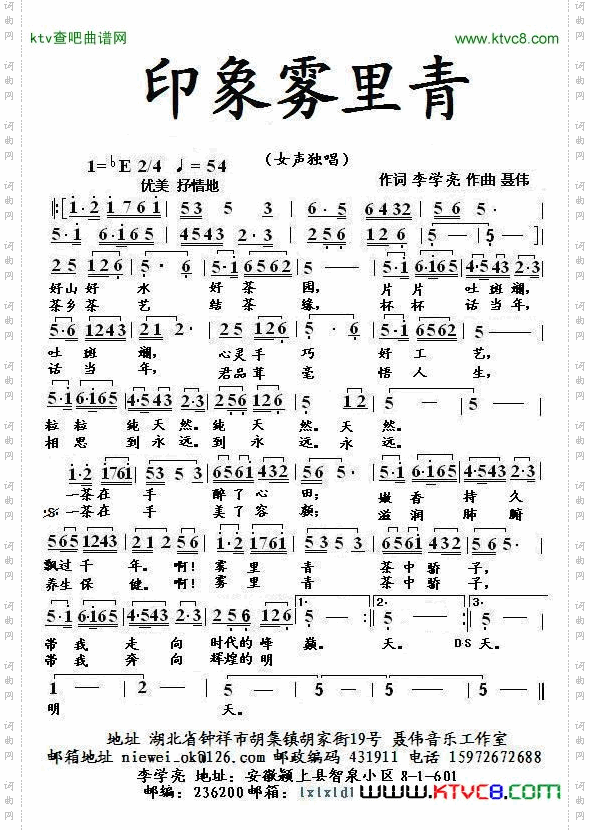 ktv查吧曲谱网
www.ktvc8.com
印象雾里青
1=♭E 2/4 ♩=54
（女声独唱）
优美 抒情地
作词 李学亮 作曲 聂伟
‖: 1·2 1761 | 53 5 3 | 6·5 | 6432 | 5 6 5 |
5·1 6·165 | 4543 2·3 | 256 | 5 — | 5 — |
25 126 | 5·1 6562 | 5 — | 5·1 6·165 | 4·543 2·3 |
好山好 水 好茶 园， 片片 吐斑斓，
茶乡茶 艺 结茶 缘， 杯杯 话当年，
5·6 1243 | 21 2 | 25 126 | 5 5 | 5·1 6562 | 5 — |
吐 斑 斓， 心灵手 巧 好工 艺，
话 当 年， 君品茸 毫 悟人 生，
5·1 6·165 | 4·543 2·3 | 256 126 | 5 12 | 5 — |
粒粒 纯天然。纯 天然。天 然。
相思 到永远。到 永远。永 远。
1·2 1761 | 53 5 3 | 6516 432 | 5 — | 5·1 6·165 | 4·543 2·3 |
一茶在 手 醉了心 田； 嫩香 持久
一茶在 手 美了容 颜； 滋润 肺腑
565 1243 | 2 5 3 | 1·2 1761 | 5353 5 | 6561 432 | 5 — |
飘过千 年。啊！雾里 青 茶中骄 子，
养生保 健。啊！雾里 青 茶中骄 子，
5·1 6·165 | 4·543 2·3 | 256 126 | 5 — | 1. 5 — :‖ 2. 5 — :‖ 3. 5 — |
带我 走向 时代的峰 巅。 天。 D·S 天。
带我 奔向 辉煌的明
1 — | 5 — | 5 — | 5 — ‖
明 天。
地址 湖北省钟祥市胡集镇胡家街19号 聂伟音乐工作室
邮箱地址 niewei_ok@126.com 邮政编码 431911 电话 15972672688
李学亮 地址：安徽颍上县智泉小区 8-1-601
邮编：236200 邮箱：lxlxldl
www.KTVC8.com
词曲网
词曲网